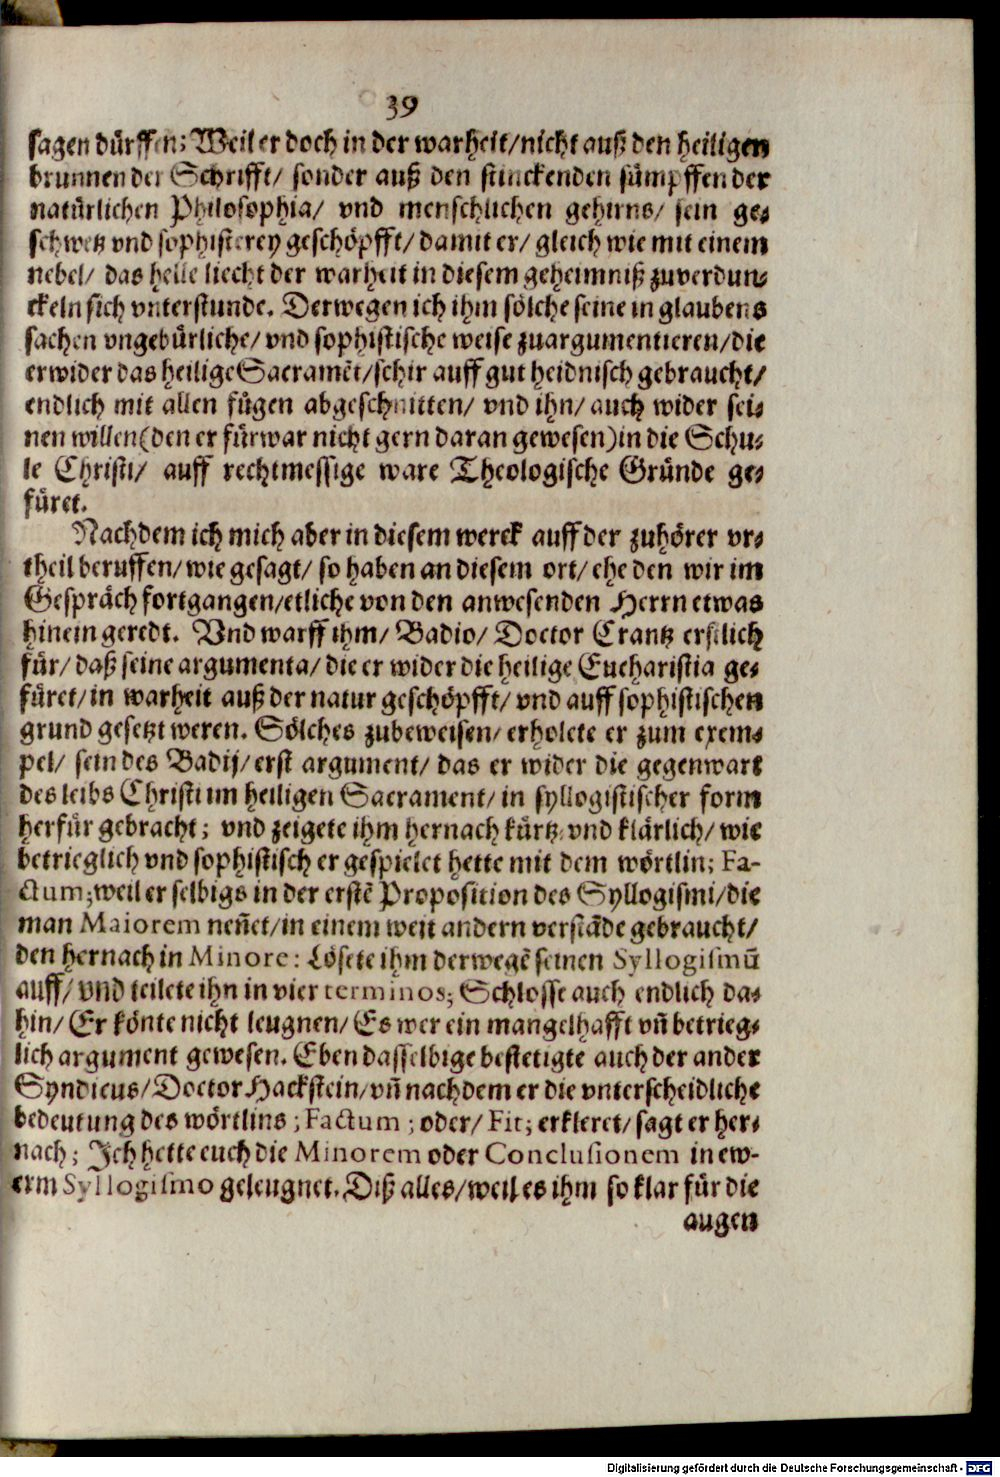 39
sagen dürffen; Weil er doch in der warheit/nicht auß den heiligen
brunnen der Schrifft/ sonder auß den stinckenden sümpffen der
natürlichen Philosophia/ vnd menschlichen gehirns/ sein ge⸗
schwetz vnd sophisterey geschöpfft/ damit er/ gleich wie mit einem
nebel/ das helle liecht der warheit in diesem geheimniß zuverdun⸗
ckeln sich vnterstunde. Derwegen ich ihm sölche seine in glaubens
sachen vngebürliche/ vnd sophistische weise zuargumentieren/die
er wider das heilige Sacramẽt/schir auff gut heidnisch gebraucht/
endlich mit allen fügen abgeschnitten/ vnd ihn/ auch wider sei⸗
nen willen(den er fürwar nicht gern daran gewesen)in die Schu⸗
le Christi/ auff rechtmessige ware Theologische Gründe ge⸗
füret.
Nachdem ich mich aber in diesem werck auff der zuhörer vr⸗
theil beruffen/wie gesagt/ so haben an diesem ort/ ehe den wir im
Gespräch fortgangen/etliche von den anwesenden Herrn etwas
hinein geredt. Vnd warff ihm/ Badio/ Doctor Crantz erstlich
für/ daß seine argumenta/ die er wider die heilige Eucharistia ge⸗
füret/in warheit auß der natur geschöpfft/ vnd auff sophistischen
grund gesetzt weren. Sölches zubeweisen/ erholete er zum exem⸗
pel/ sein des Badij/ erst argument/ das er wider die gegenwart
des leibs Christi im heiligen Sacrament/ in syllogistischer form
herfür gebracht; vnd zeigete ihm hernach kürtz vnd klärlich/ wie
betrieglich vnd sophistisch er gespielet hette mit dem wörtlin; Fa-
ctum; weil er selbigs in der erstẽ Proposition des Syllogismi/die
man Maiorem neñet/in einem weit andern verstãde gebraucht/
den hernach in Minore: Lösete ihm derwegẽ seinen Syllogismũ
auff/ vnd teilete ihn in vier terminos; Schlosse auch endlich da⸗
hin/ Er könte nicht leugnen/ Es wer ein mangelhafft vñ betrieg⸗
lich argument gewesen. Eben dasselbige bestetigte auch der ander
Syndicus/Doctor Hackstein/vñ nachdem er die vnterscheidliche
bedeutung des wörtlins ; Factum ; oder/ Fit; erkleret/ sagt er her⸗
nach; Ich hette euch die Minorem oder Conclusionem in ew-
erm Syllogismo geleugnet. Diß alles/weil es ihm so klar für die
augen
Digitalisierung gefördert durch die Deutsche Forschungsgemeinschaft - DFG